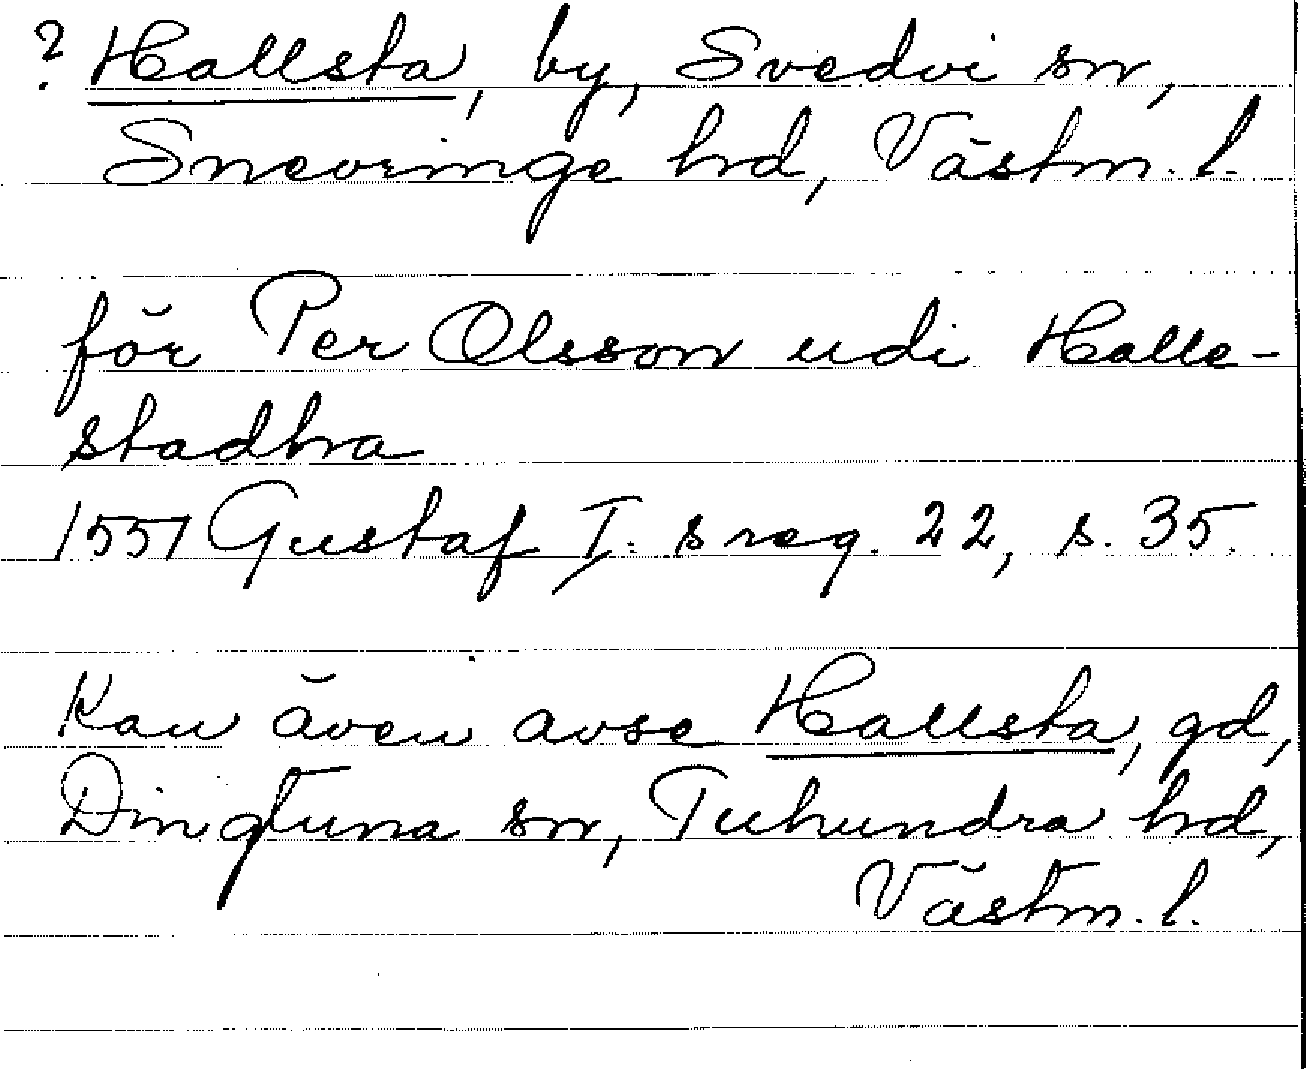 ? Hallsta, by, Svedvi sn,
Snevringe hd, Västm. l.
för Per Olsson udi Halle-
stadha
1551 Gustaf I:s reg. 22, s. 35.
Kan även avse Hallsta, gd,
Dingtuna sn, Tuhundra hd,
Västm. l.